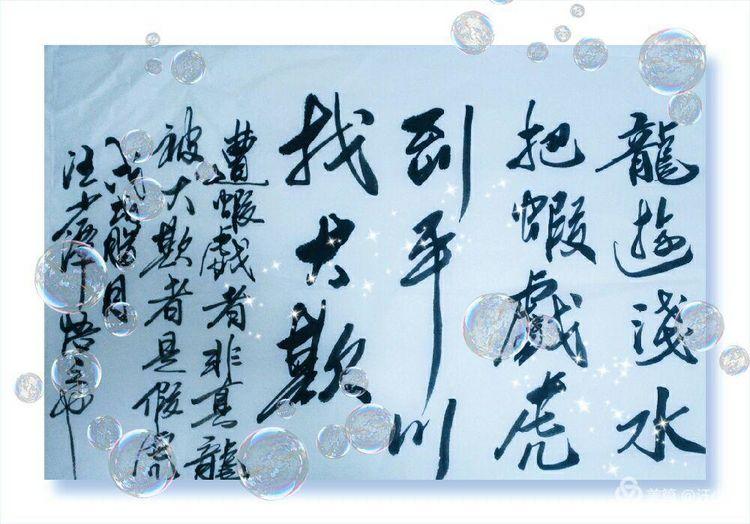 龍遊淺水
把蝦戲虎
到平川
找犬欺
遭蝦戲者非真龍
被犬欺者是假虎
戊戌臘月
汪少
美篇 @汪